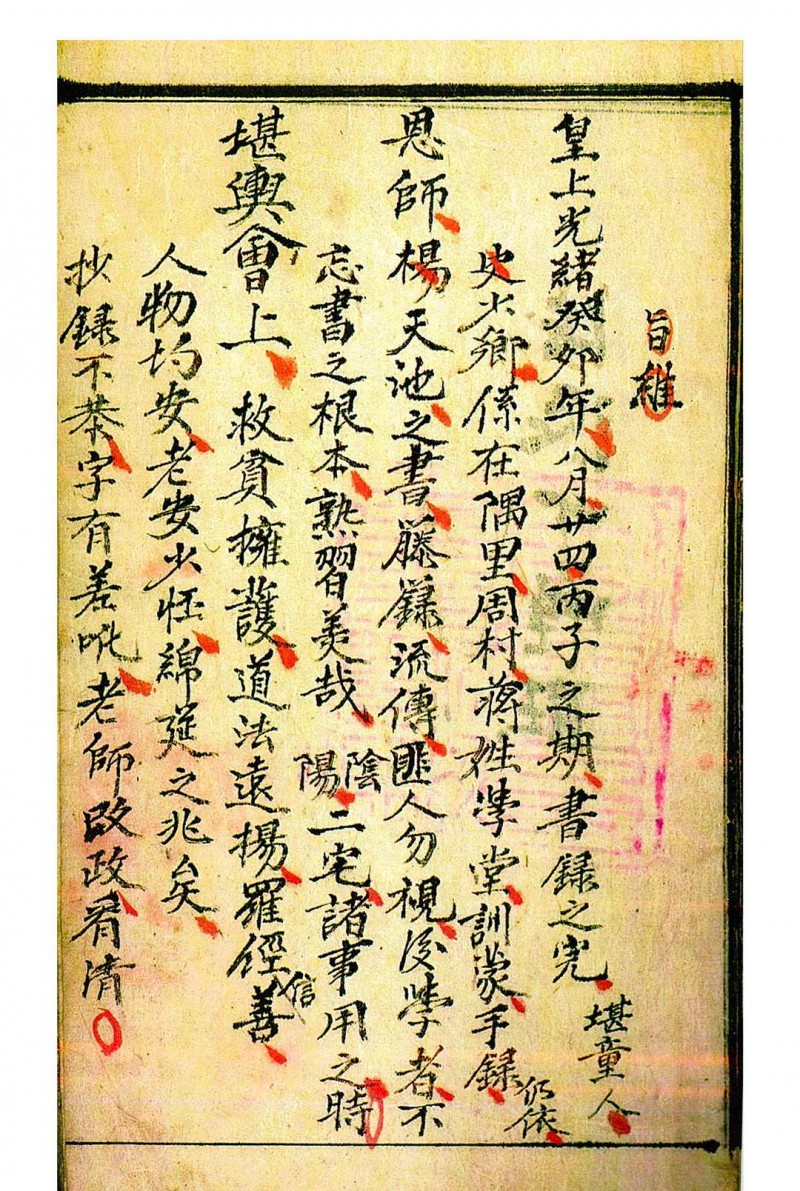 旨
皇上光緒癸卯年八月廿四丙子之期書錄之完 堪童人
史火鄉係在隅里周村蔣姓學堂訓蒙手錄仍依
恩師楊天池之書籐錄流傳匪人勿視後學者不
忘書之根本熟習美哉陰陽二宅諸事用之時
堪輿會上救貧擁護道法遠揚羅經善信
人物均安老安少怔綿莚之兆矣
抄錄不恭字有差吪老師改政看清